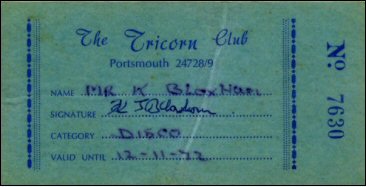 The Tricorn Club
Portsmouth 24728/9
NAME MR K BLOXHAM
SIGNATURE
CATEGORY DISCO
VALID UNTIL 12-11-72
No. 7630